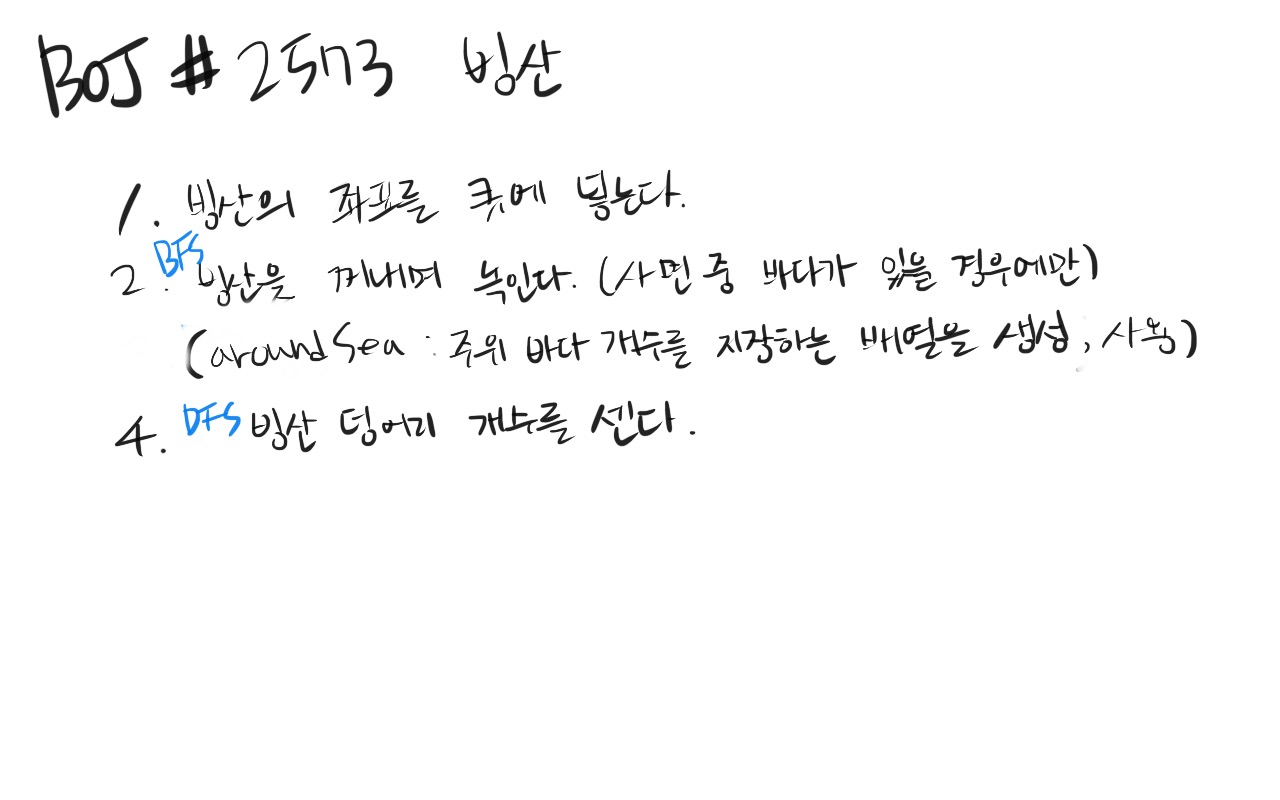 BOJ # 2573 빙산
1. 빙산의 좌표를 큐에 넣는다.
2. BFS 빙산을 꺼내며 녹인다. (사면 중 바다가 있을 경우에만)
(around Sea : 주위 바다 개수를 저장하는 배열을 생성, 사용)
4. DFS 빙산 덩어리 개수를 센다.